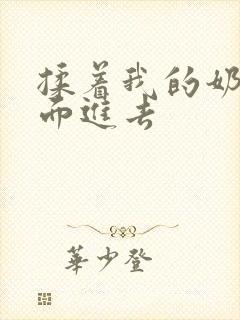 揉着我的奶
而進去
華少登